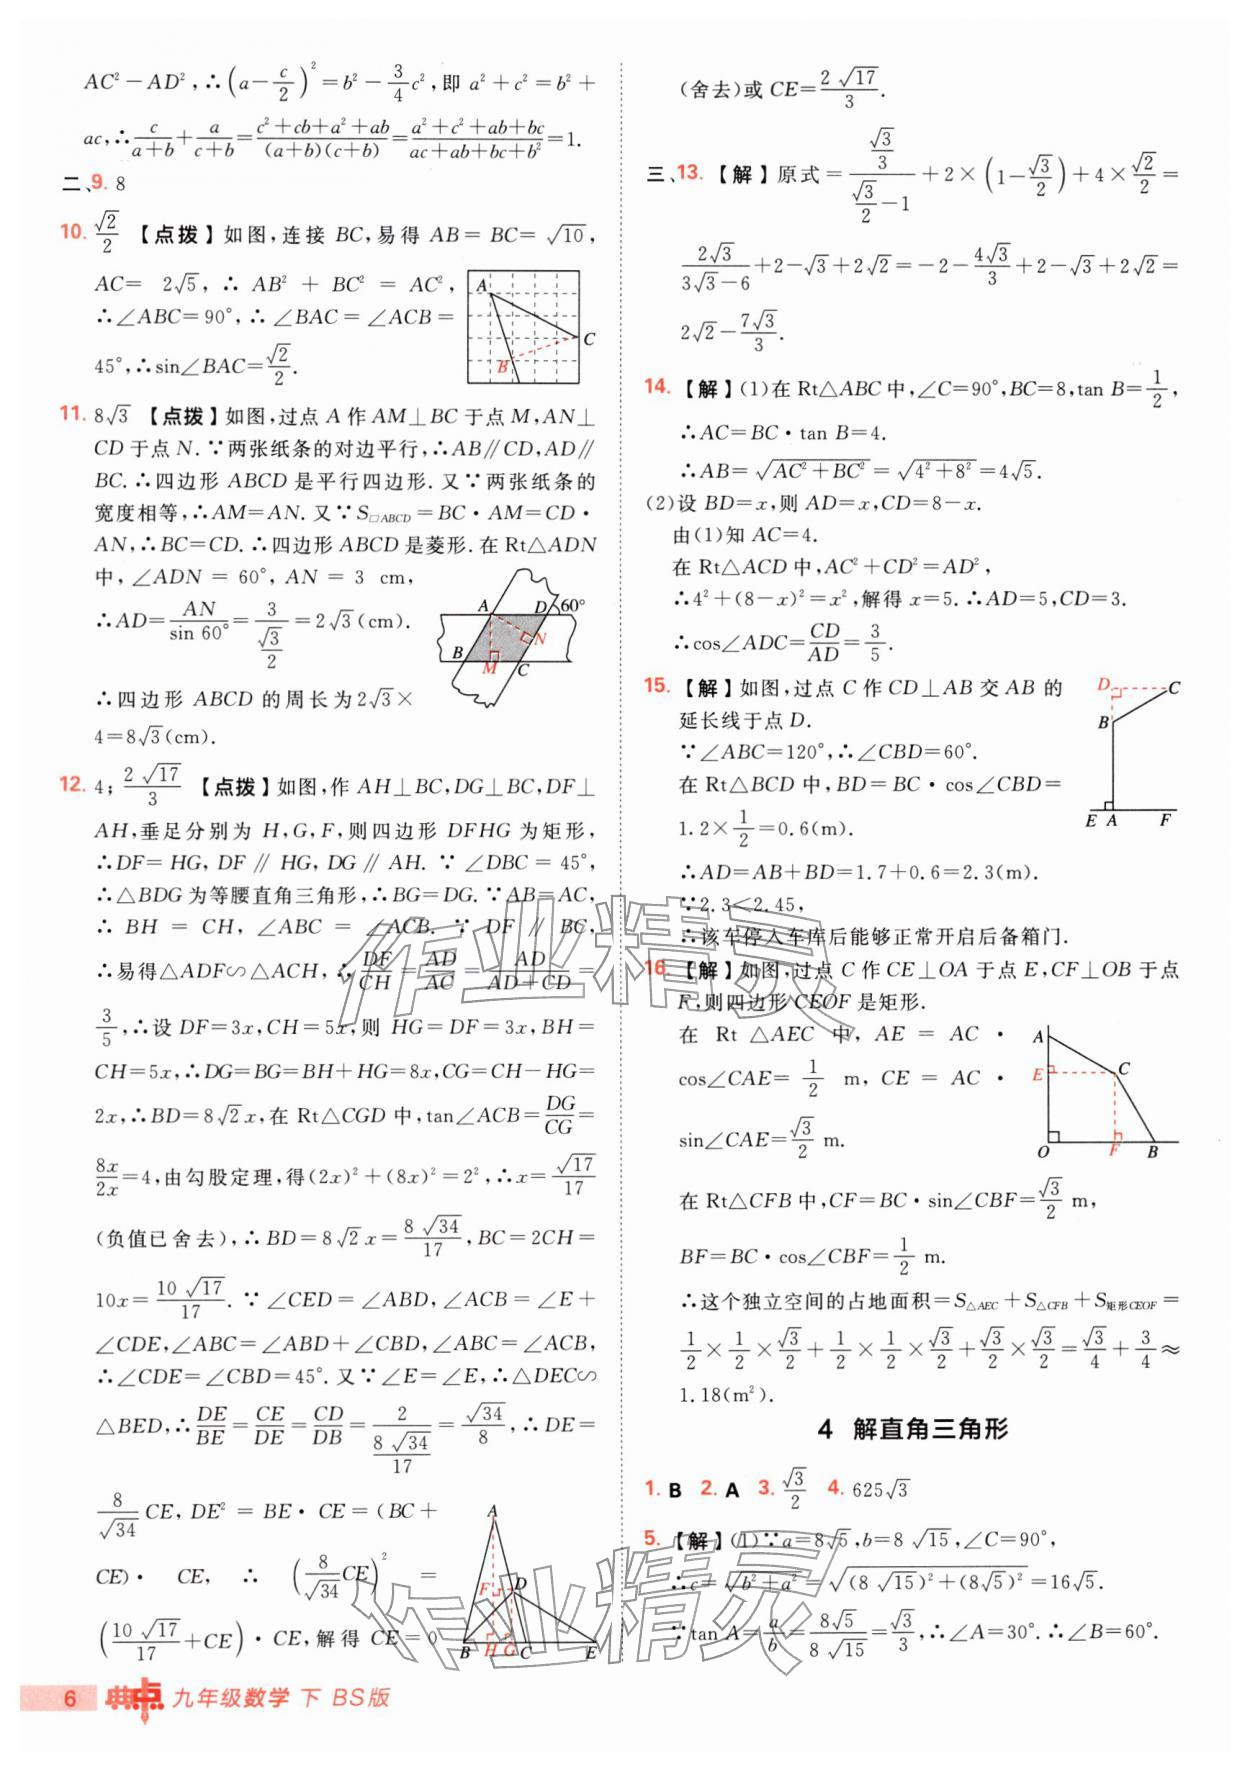 AC²－AD²,∴(a－c/2)²＝b²－3/4c²,即 a²＋c²＝b²＋
ac,∴c/(a＋b)＋a/(c＋b)＝(c²＋cb＋a²＋ab)/((a＋b)(c＋b))＝(a²＋c²＋ab＋bc)/(ac＋ab＋bc＋b²)＝1.
二、9. 8
10. √2/2 【点拨】如图,连接 BC,易得 AB＝BC＝√10,
AC＝2√5,∴AB²＋BC²＝AC²,
∴∠ABC＝90°,∴∠BAC＝∠ACB＝
45°,∴sin∠BAC＝√2/2.
A
C
B
11. 8√3 【点拨】如图,过点 A 作 AM⊥BC 于点 M,AN⊥
CD 于点 N.∵两张纸条的对边平行,∴AB∥CD,AD∥
BC.∴四边形 ABCD 是平行四边形.又∵两张纸条的
宽度相等,∴AM＝AN.又∵S□ABCD＝BC·AM＝CD·
AN,∴BC＝CD.∴四边形 ABCD 是菱形.在 Rt△ADN
中,∠ADN＝60°,AN＝3 cm,
∴AD＝AN/sin 60°＝3/(√3/2)＝2√3(cm).
∴四边形 ABCD 的周长为 2√3×
4＝8√3(cm).
A D 60°
N
B M C
12. 4；2√17/3 【点拨】如图,作 AH⊥BC,DG⊥BC,DF⊥
AH,垂足分别为 H,G,F,则四边形 DFHG 为矩形,
∴DF＝HG,DF∥HG,DG∥AH.∵∠DBC＝45°,
∴△BDG 为等腰直角三角形,∴BG＝DG.∵AB＝AC,
∴BH＝CH,∠ABC＝∠ACB.∵DF∥BC,
∴易得△ADF∽△ACH,∴DF/CH＝AD/AC＝AD/(AD＋CD)＝
3/5,∴设 DF＝3x,CH＝5x,则 HG＝DF＝3x,BH＝
CH＝5x,∴DG＝BG＝BH＋HG＝8x,CG＝CH－HG＝
2x,∴BD＝8√2x,在 Rt△CGD 中,tan∠ACB＝DG/CG＝
8x/2x＝4,由勾股定理,得(2x)²＋(8x)²＝2²,∴x＝√17/17
(负值已舍去),∴BD＝8√2x＝8√34/17,BC＝2CH＝
10x＝10√17/17.∵∠CED＝∠ABD,∠ACB＝∠E＋
∠CDE,∠ABC＝∠ABD＋∠CBD,∠ABC＝∠ACB,
∴∠CDE＝∠CBD＝45°.又∵∠E＝∠E,∴△DEC∽
△BED,∴DE/BE＝CE/DE＝CD/DB＝2/(8√34/17)＝√34/8,∴DE＝
8/√34 CE,DE²＝BE·CE＝(BC＋
CE)·CE,∴(8/√34 CE)²＝
(10√17/17＋CE)·CE,解得 CE＝0
A
F D
B H G C E
(舍去)或 CE＝2√17/3.
三、13.【解】原式＝(√3/3)/(√3/2－1)＋2×(1－√3/2)＋4×√2/2＝
2√3/(3√3－6)＋2－√3＋2√2＝－2－4√3/3＋2－√3＋2√2＝
2√2－7√3/3.
14.【解】(1)在 Rt△ABC 中,∠C＝90°,BC＝8,tan B＝1/2,
∴AC＝BC·tan B＝4.
∴AB＝√(AC²＋BC²)＝√(4²＋8²)＝4√5.
(2)设 BD＝x,则 AD＝x,CD＝8－x.
由(1)知 AC＝4.
在 Rt△ACD 中,AC²＋CD²＝AD²,
∴4²＋(8－x)²＝x²,解得 x＝5.∴AD＝5,CD＝3.
∴cos∠ADC＝CD/AD＝3/5.
15.【解】如图,过点 C 作 CD⊥AB 交 AB 的
延长线于点 D.
∵∠ABC＝120°,∴∠CBD＝60°.
在 Rt△BCD 中,BD＝BC·cos∠CBD＝
1.2×1/2＝0.6(m).
∴AD＝AB＋BD＝1.7＋0.6＝2.3(m).
∵2.3＜2.45,
∴该车停入车库后能够正常开启后备箱门.
D C
B
E A F
16.【解】如图,过点 C 作 CE⊥OA 于点 E,CF⊥OB 于点
F,则四边形 CEOF 是矩形.
在 Rt△AEC 中,AE＝AC·
cos∠CAE＝1/2 m,CE＝AC·
sin∠CAE＝√3/2 m.
在 Rt△CFB 中,CF＝BC·sin∠CBF＝√3/2 m,
BF＝BC·cos∠CBF＝1/2 m.
∴这个独立空间的占地面积＝S△AEC＋S△CFB＋S矩形CEOF＝
1/2×1/2×√3/2＋1/2×1/2×√3/2＋√3/2×√3/2＝√3/4＋3/4≈
1.18(m²).
A
E C
O F B
4 解直角三角形
1. B 2. A 3. √3/2 4. 625√3
5.【解】(1)∵a＝8√5,b＝8√15,∠C＝90°,
∴c＝√(b²＋a²)＝√((8√15)²＋(8√5)²)＝16√5.
∵tan A＝a/b＝8√5/8√15＝√3/3,∴∠A＝30°.∴∠B＝60°.
作业精灵
作业精灵
6 典点 九年级数学 下 BS版